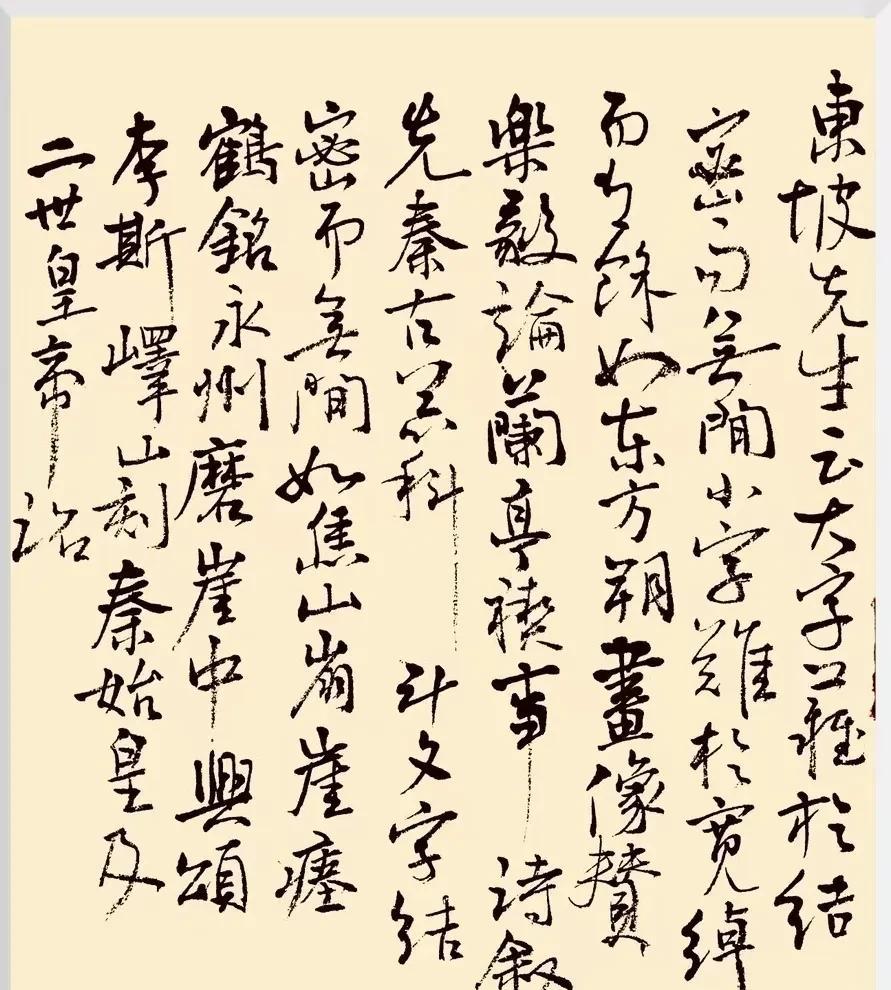 東坡先生云大字難於結
密而無間小字難於寬綽
而有餘如東方朔畫像贊
樂毅論蘭亭禊事詩敘
先秦古器科斗文字結
密而無間如焦山崩崖瘞
鶴銘永州磨崖中興頌
李斯嶧山刻秦始皇及
二世皇帝詔